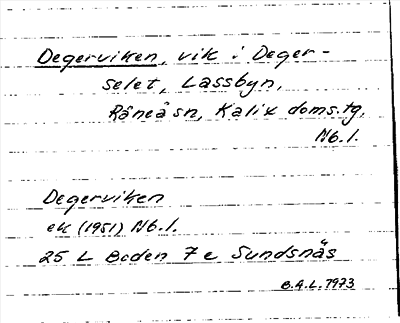 Degerviken, vik i Deger-
selet, Lassbyn,
Råneå sn, Kalix doms.tg,
Nb.l.
Degerviken
ek (1951) Nb.l.
25 L Boden 7e Sundsnäs
B.A.L. 1973